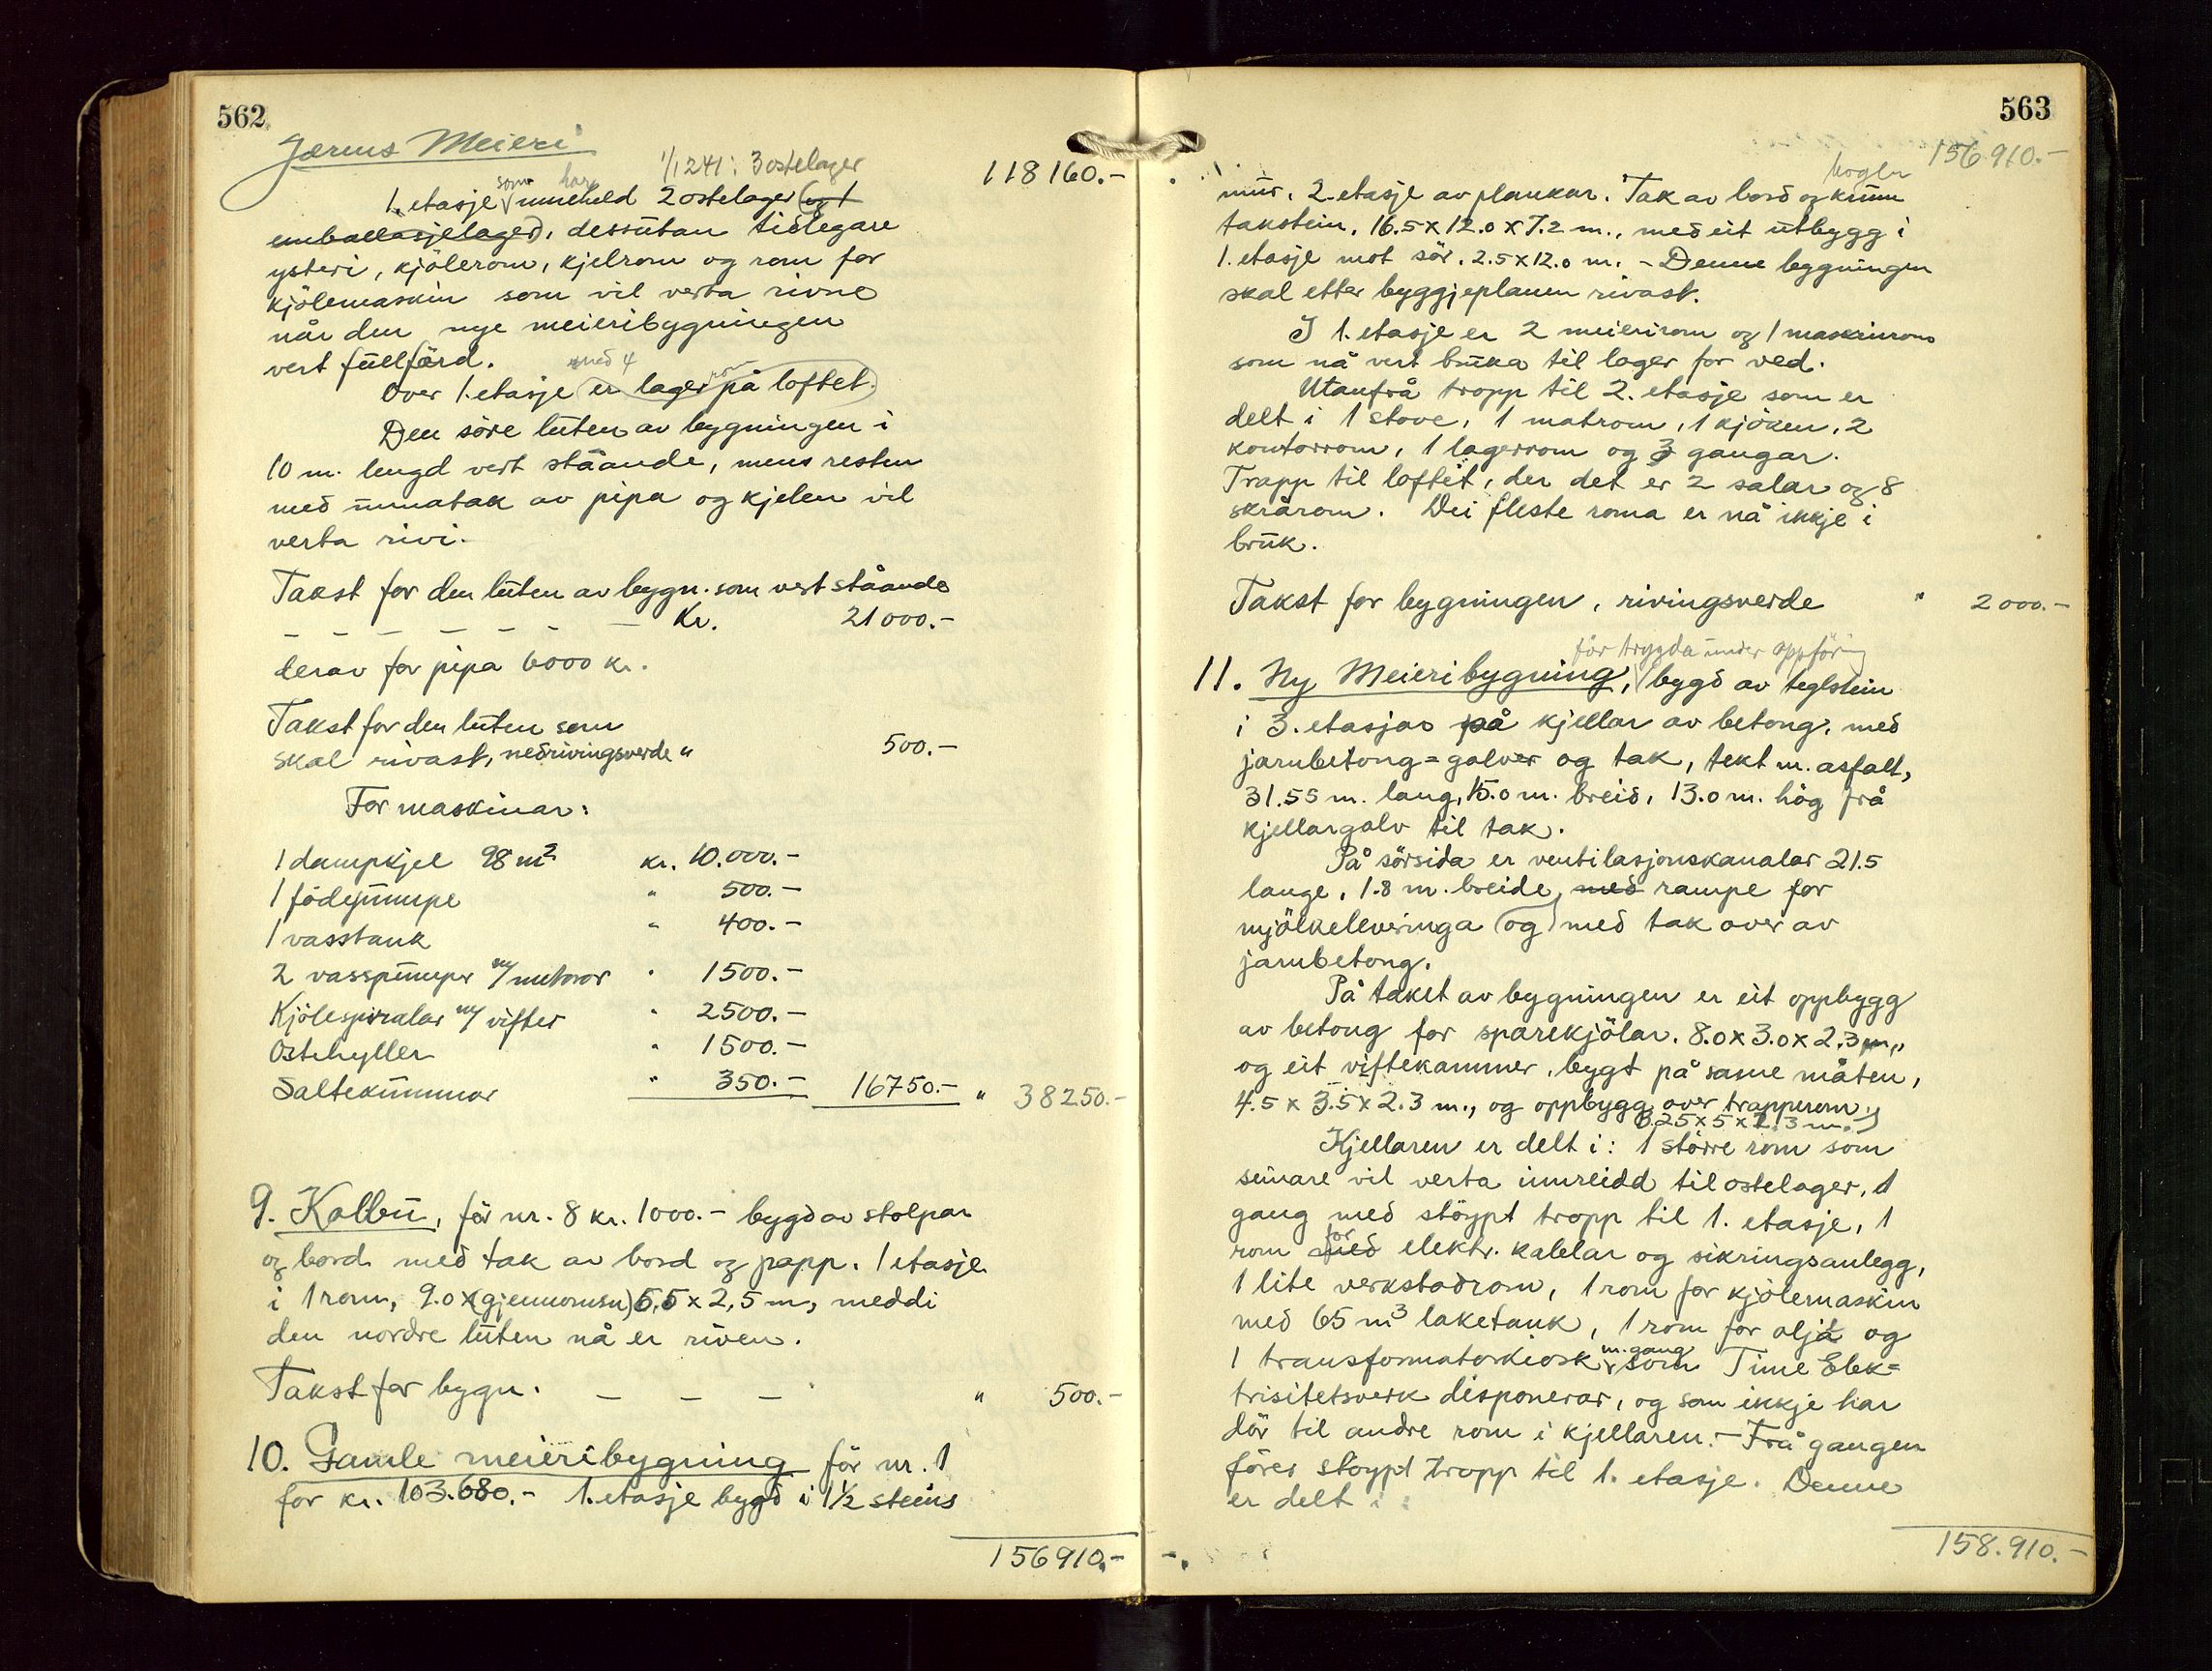 562
Jærens Meieri
1/12 41: 3 ostelager
118160.-
som har
1. etasje inneheld 2 ostelager (og 1
emballasjelager), dessutan tidlegare
ysteri, kjölerom, kjelrom og rom for
kjölemaskin som vil verta rivne
når den nye meieribygningen
vert fullförd.
med 4 rom
Over 1. etasje er lager på loftet.
Den söre luten av bygningen i
10 m. lengd vert ståande, mens resten
med unnatak av pipa og kjelen vil
verta rivi.
Takst for den luten av bygn. som vert ståande
– – – – – – – Kr. 21000.-
derav for pipa 6000 kr.
Takst for den luten som
skal rivast, nedrivingsverde " 500.-
For maskinar:
1 dampkjel 98 m² kr. 10.000.-
1 födepumpe " 500.-
1 vasstank " 400.-
2 vasspumper m/ motorar " 1500.-
Kjölespiralar m/ vifter " 2500.-
Ostehyller " 1500.-
Saltekummar " 350.- 16750.- " 38250.-
9. Kolbu, för nr. 8 kr. 1000.- bygd av stolpar
og bord med tak av bord og papp. 1 etasje
i 1 rom, 9.0 x (gjennomsn) 5,5 x 2,5 m, meddi
den nordre luten nå er riven.
Takst for bygn. – – – " 500.-
10. Gamle meieribygning för nr. 1
for kr. 103.680.- 1. etasje bygd i 1½ steins
156910.-
563
156910.-
mogler
mur, 2. etasje av plankar. Tak av bord og krum
takstein, 16.5 x 12.0 x 7.2 m., med eit utbygg i
1. etasje mot sör, 2.5 x 12.0 m. - Denne bygningen
skal etter byggjeplanen rivast.
I 1. etasje er 2 meierirom og 1 maskinrom
som nå vert bruka til lager for ved.
Utanfrå tropp til 2. etasje som er
delt i 1 stove, 1 matrom, 1 kjöken, 2
kontorrom, 1 lagerrom og 3 gangar.
Trapp til loftet, der det er 2 salar og 8
skrårom. Dei fleste roma er nå ikkje i
bruk.
Takst for bygningen, rivingsverde " 2000.-
för trygda under oppföring
11. Ny Meieribygning, bygd av teglstein
i 3. etasjar på kjellar av betong, med
jarnbetong=golver og tak, tekt m. asfalt,
31.55 m. lang, 15.0 m. breid, 13.0 m. hög frå
kjellargolv til tak.
På sörsida er ventilasjonskanalar 21.5
lange, 1.8 m. breide, med rampe for
mjölkeleveringa (og) med tak over av
jarnbetong.
På taket av bygningen er eit oppbygg
av betong for sparekjölar. 8.0 x 3.0 x 2.3 m,,
og eit viftekammer, bygt på same måten,
4.5 x 3.5 x 2.3 m., og oppbygg over trapperom.
3.25 x 5 x 2.3 m.
Kjellaren er delt i: 1 större rom som
seinare vil verta innreidd til ostelager, 1
gang med stöypt tropp til 1. etasje, 1
for
rom med elektr. kablar og sikringsanlegg,
1 lite verkstadrom, 1 rom for kjölemaskin
med 65 m³ laketank, 1 rom for olje og
m. gang
1 transformatorkiosk som Time Elek=
trisitetsverk disponerar, og som ikkje har
dör til andre rom i kjellaren. - Frå gangen
förer stöypt tropp til 1. etasje. Denne
er delt i
158.910.-